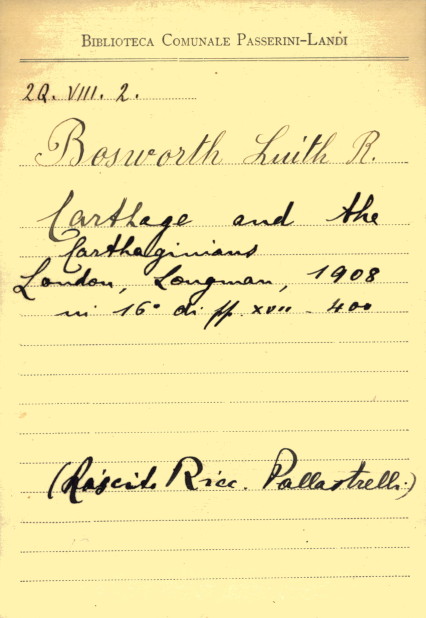 BIBLIOTECA COMUNALE PASSERINI-LANDI
2Q. VIII. 2.
Bosworth Smith R.
Carthage and the
Carthaginians
London, Longman, 1908
in 16° di pp. XVII - 400
(Lascito Ricc. Pallastrelli)